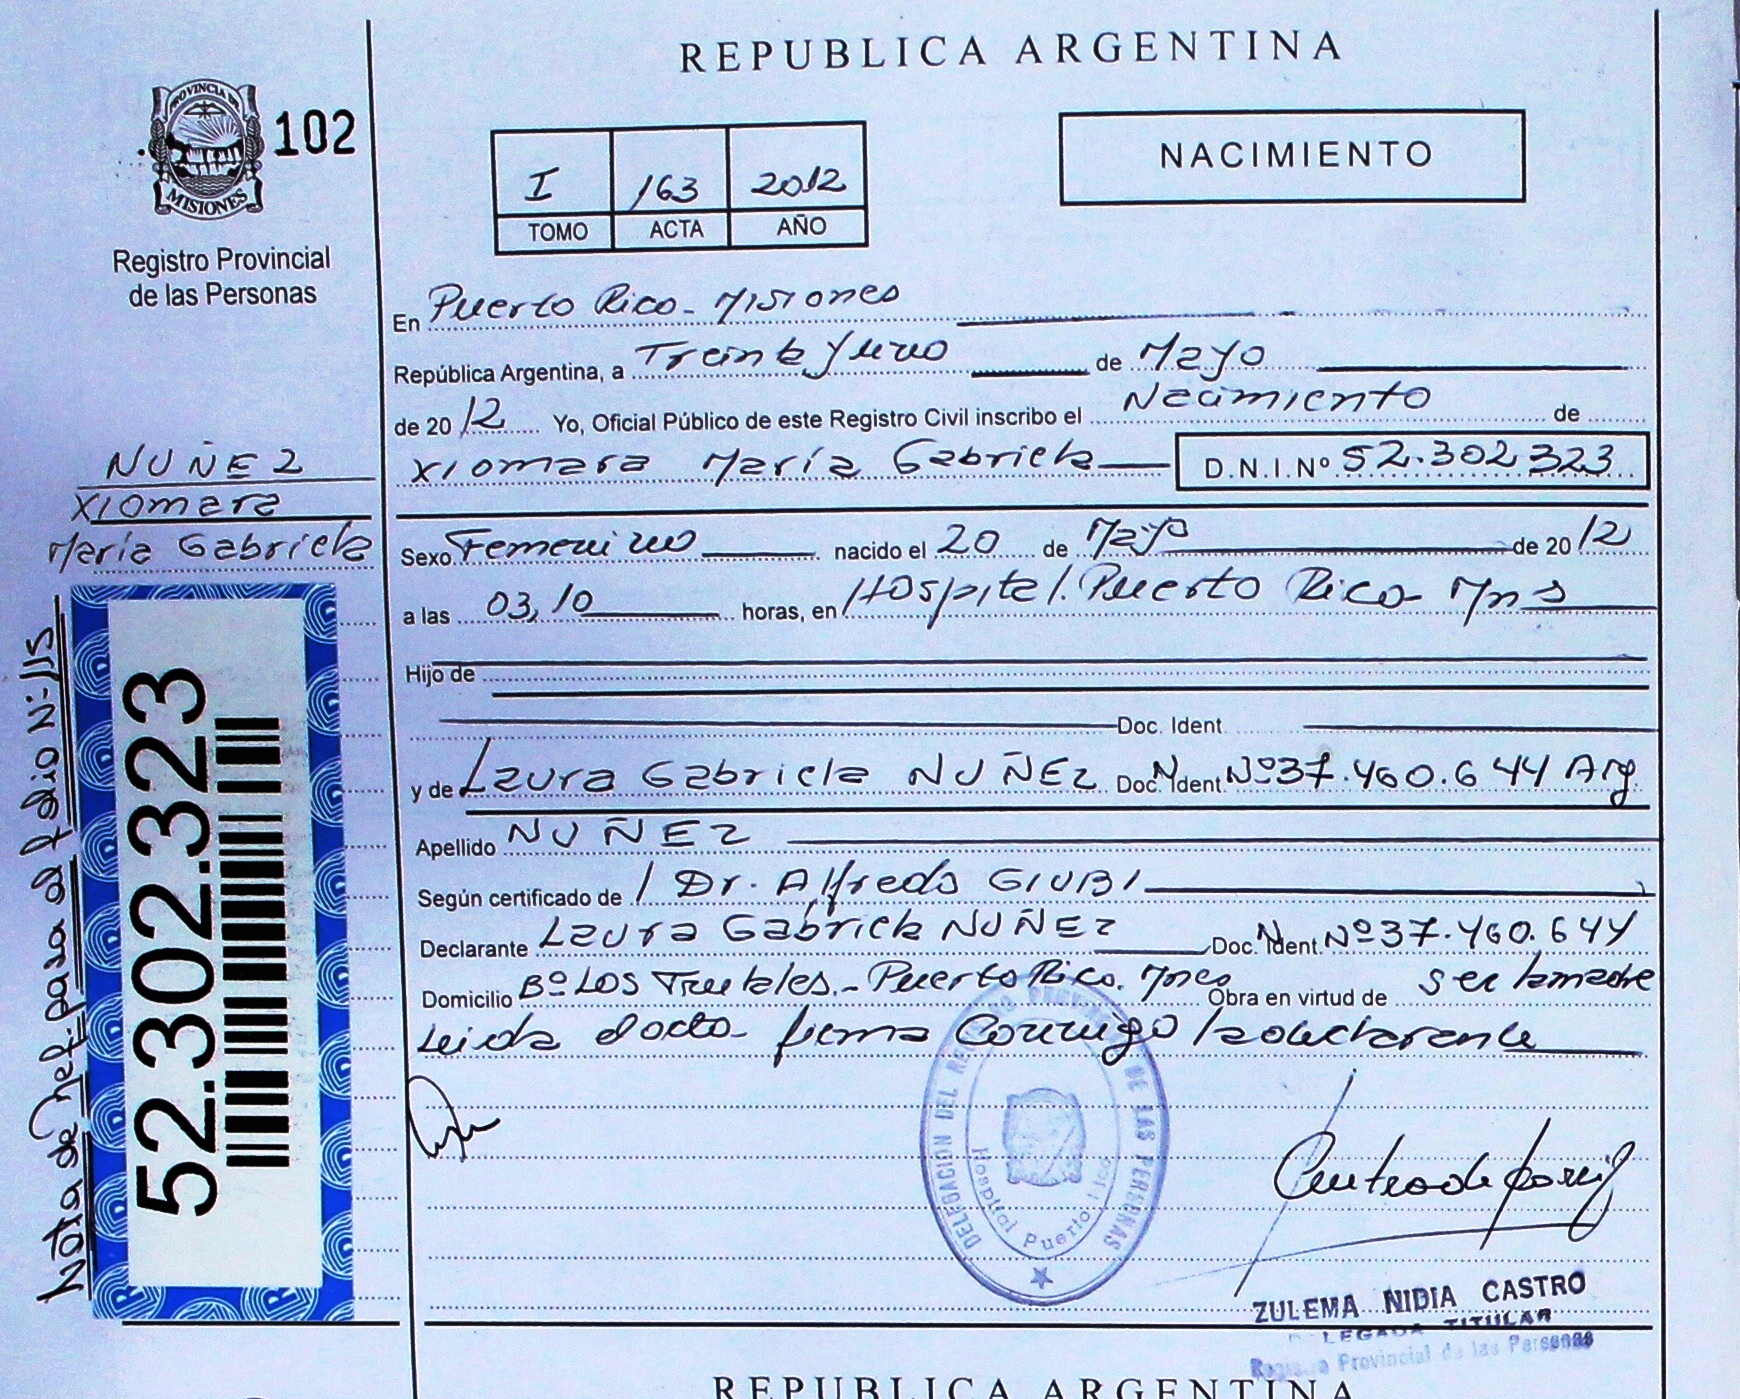 REPUBLICA ARGENTINA
PROVINCIA DE
MISIONES
102
Registro Provincial
de las Personas
I 163 2012
TOMO ACTA AÑO
NACIMIENTO
En Puerto Rico - Misiones
República Argentina, a Treinta y uno de Mayo
de 2012 Yo, Oficial Público de este Registro Civil inscribo el Nacimiento de
Xiomara María Gabriela D.N.I.Nº 52.302.323
NUÑEZ
Xiomara
María Gabriela
Sexo Femenino nacido el 20 de Mayo de 2012
a las 03,10 horas, en Hospital. Puerto Rico Mns
Hijo de
Doc. Ident
y de Laura Gabriela NUÑEZ Doc. N Ident Nº 37.460.644 Arg
Apellido NUÑEZ
Según certificado de Dr. Alfredo GIUBI
Declarante Laura Gabriela NUÑEZ Doc. N Ident. Nº 37.460.644
Domicilio Bº Los - Puerto Rico. Obra en virtud de ser la madre
Leida el acta firma conmigo la declarante
52.302.323
Nota de Ref. para el folio Nº 115
DELEGACION DEL REGISTRO PROVINCIAL DE LAS PERSONAS
Hospital Puerto Rico
ZULEMA NIDIA CASTRO
DELEGADA TITULAR
Registro Provincial de las Personas
REPUBLICA ARGENTINA